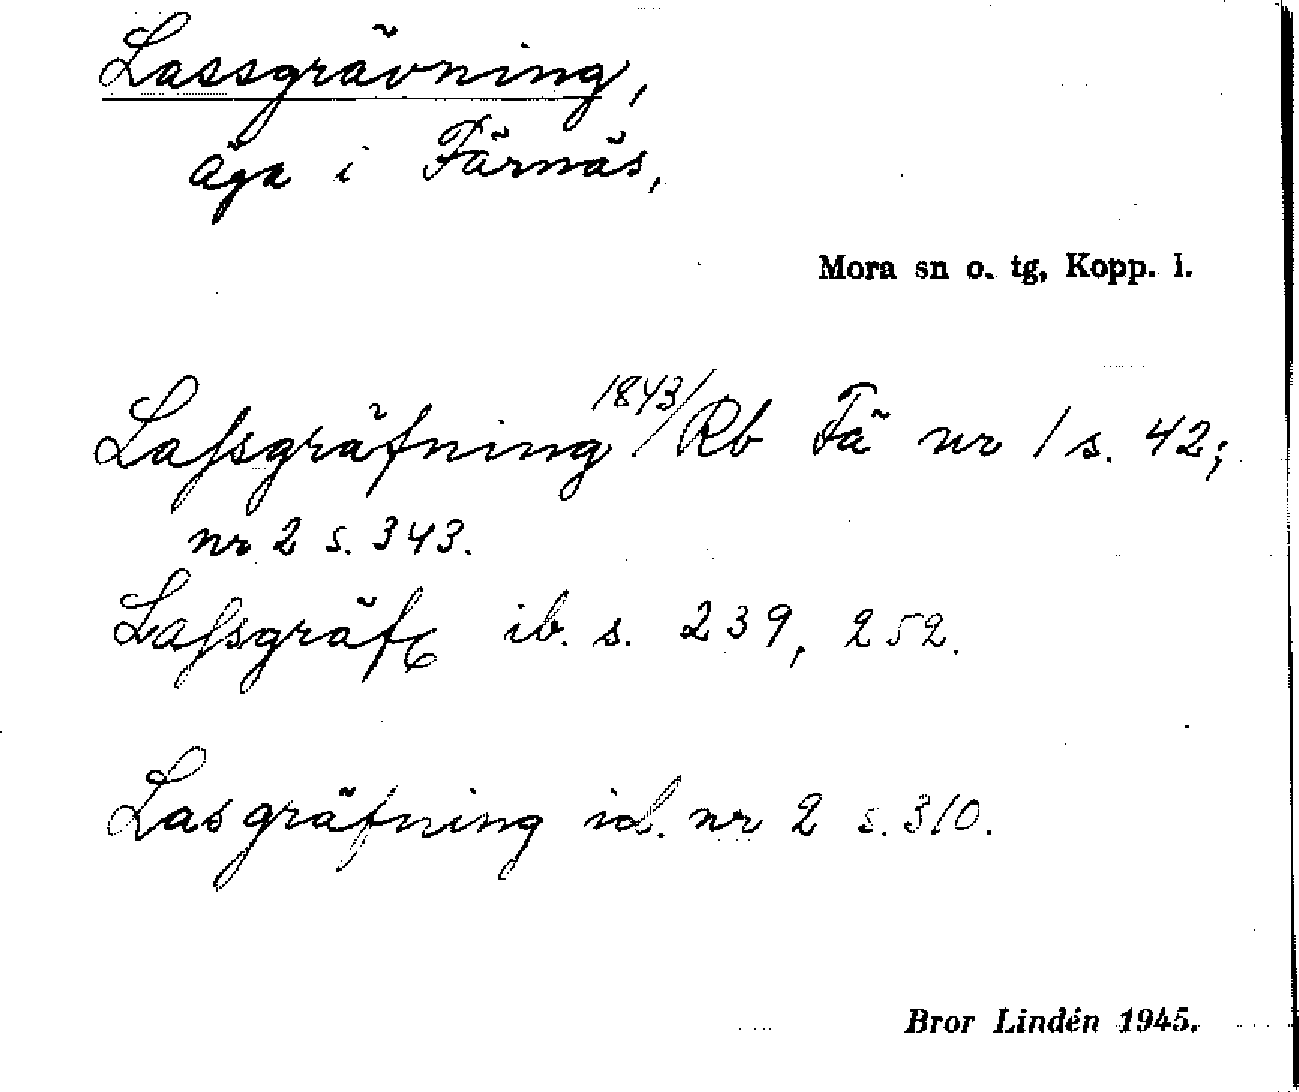 Lassgrävning,
äga i Färnäs,
Mora sn o. tg, Kopp. l.
Laſsgräfning 1843/Rb Fä nr 1 s. 42;
nr 2 s. 343.
Laſsgräf ib. s. 239, 252.
Lasgräfning id. nr 2 s. 310.
Bror Lindén 1945.